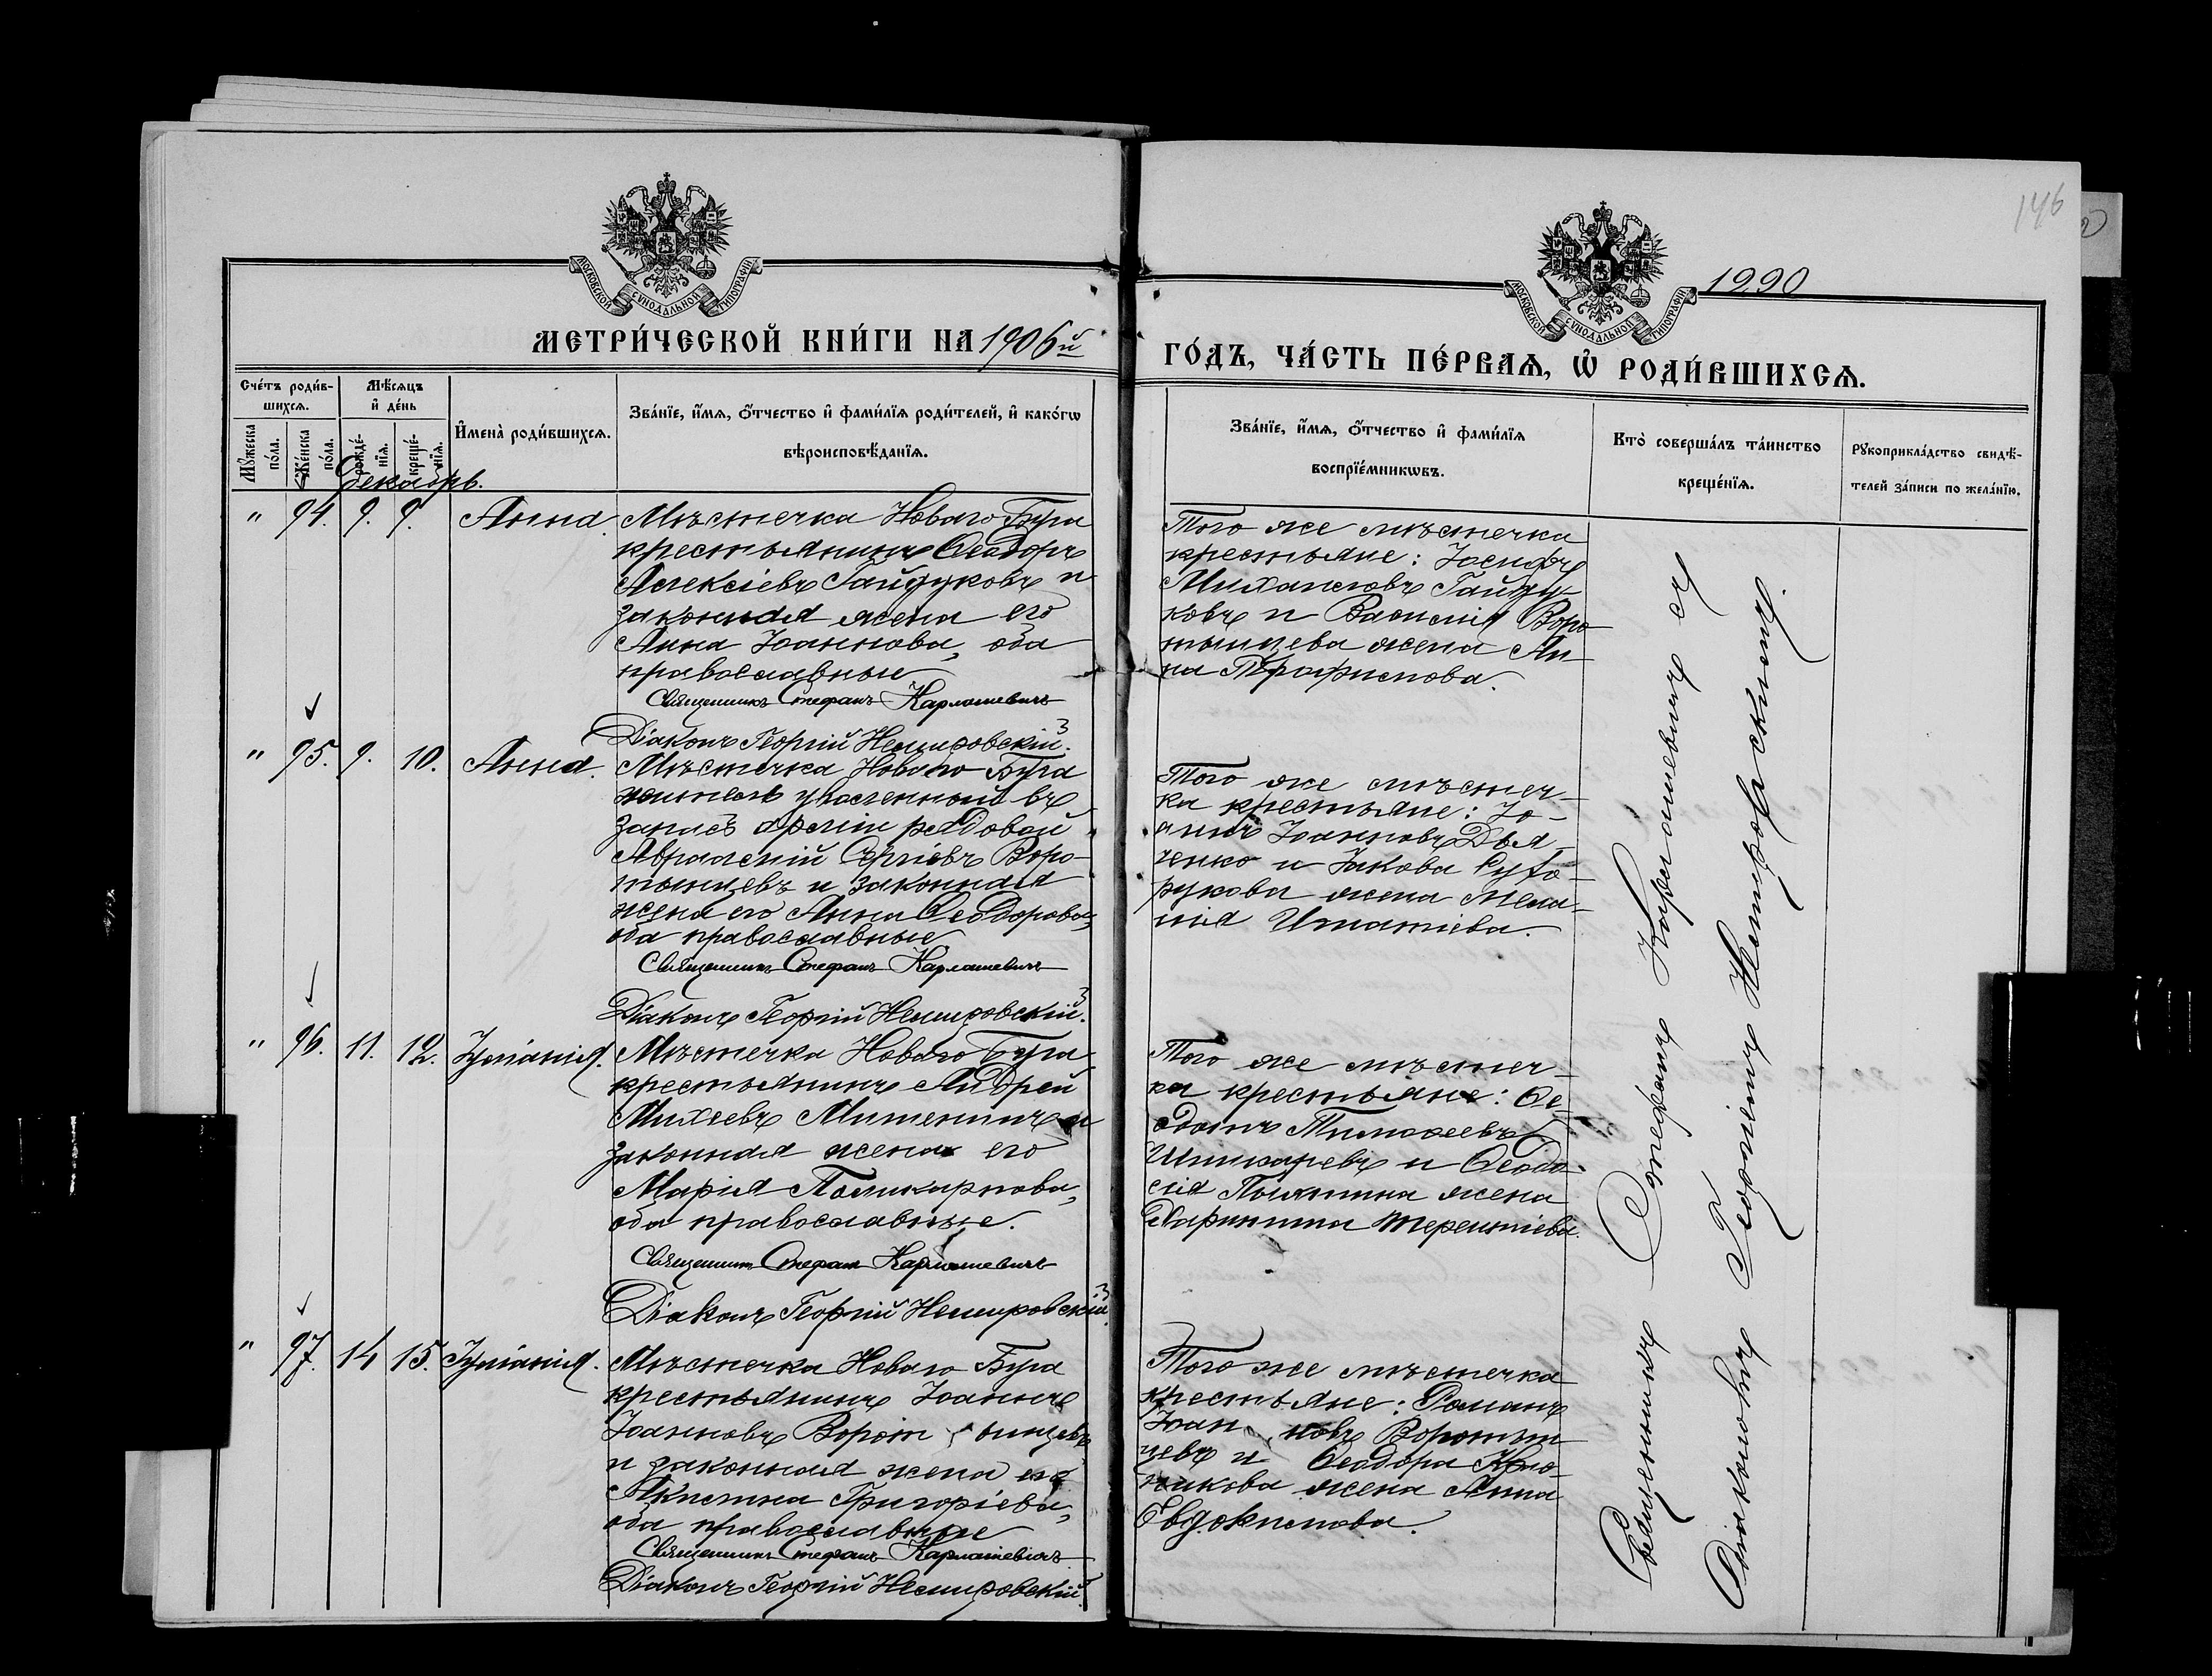 146
1290
МОСКОВСКОЙ СѴНОДАЛЬНОЙ ТИПОГРАФІИ
МОСКОВСКОЙ СѴНОДАЛЬНОЙ ТИПОГРАФІИ
МЕТРИ́ЧЕСКОЙ КНИ́ГИ НА 1906й
ГО́ДЪ, ЧА́СТЬ ПЕ́РВАѦ, Ѡ҆ РОДИ́ВШИХСѦ.
Сче́тъ роди́в-
шихсѧ.
Мꙋ́жеска
по́ла.
Же́нска
по́ла.
Мѣ́сѧцъ
и҆ де́нь
рожде́-
нїѧ.
креще́-
нїѧ.
И҆мена̀ роди́вшихсѧ.
Зва́нїе, и҆́мѧ, ѻ҆́тчество и҆ фами́лїѧ роди́телей, и҆ како́гѡ
вѣроисповѣ́данїѧ.
Зва́нїе, и҆́мѧ, ѻ҆́тчество и҆ фами́лїѧ
воспрїе́мникѡвъ.
Кто̀ соверша́лъ та́инство
креще́нїѧ.
Рꙋкоприкла́дство свидѣ́-
телей за́писи по жела́нїю.
Декабрь.
" 94. 9. 9. Анна.
Мѣстечка Новаго Буга
крестьянинъ Ѳеодоръ
Алексіевъ Гайдуковъ и
законная жена его
Анна Іоаннова, оба
православные
Священникъ Стефанъ Карлашевичъ
Діаконъ Георгій Немировскій.
Того же мѣстечка
крестьяне: Іосифъ
Михаиловъ Гайду-
ковъ и Василія Воро-
тынцева жена Ан-
на Трофимова.
" 95. 9. 10. Анна.
Мѣстечка Новаго Буга
уволенный въ
запасъ арміи рядовой
Сергіевъ Воро-
тынцевъ и законная
жена его Анна Ѳеодорова,
оба православные
Священникъ Стефанъ Карлашевичъ
Діаконъ Георгій Немировскій.
Того же мѣстеч-
ка крестьяне: Іо-
аннъ Іоанновъ Дья-
ченко и Іакова Суго-
рукова жена Мела-
нія Игнатіева.
" 96. 11. 12. Іуліанія.
Мѣстечка Новаго Буга
крестьянинъ Андрей
Михеевъ Митенинъ и
законная жена его
Марія Поликарпова,
оба православные.
Священникъ Стефанъ Карлашевичъ
Діаконъ Георгій Немировскій.
Того же мѣстеч-
ка крестьяне: Ѳе-
Тимоѳеевъ
и Ѳеодо-
сія жена
Терентіева.
" 97. 14 15. Іуліанія.
Мѣстечка Новаго Буга
крестьянинъ Іоаннъ
Іоанновъ Воротынцевъ
и законная жена его
Акилина Григоріева,
оба православные
Священникъ Стефанъ Карлашевичъ
Діаконъ Георгій Немировскій.
Того же мѣстечка
крестьяне: Романъ
Іоанновъ Воротын-
цевъ и Ѳеодора
жена Анна
Евдокимова.
Священникъ Стефанъ Карлашевичъ съ
Діакономъ Георгіемъ Немировскимъ.